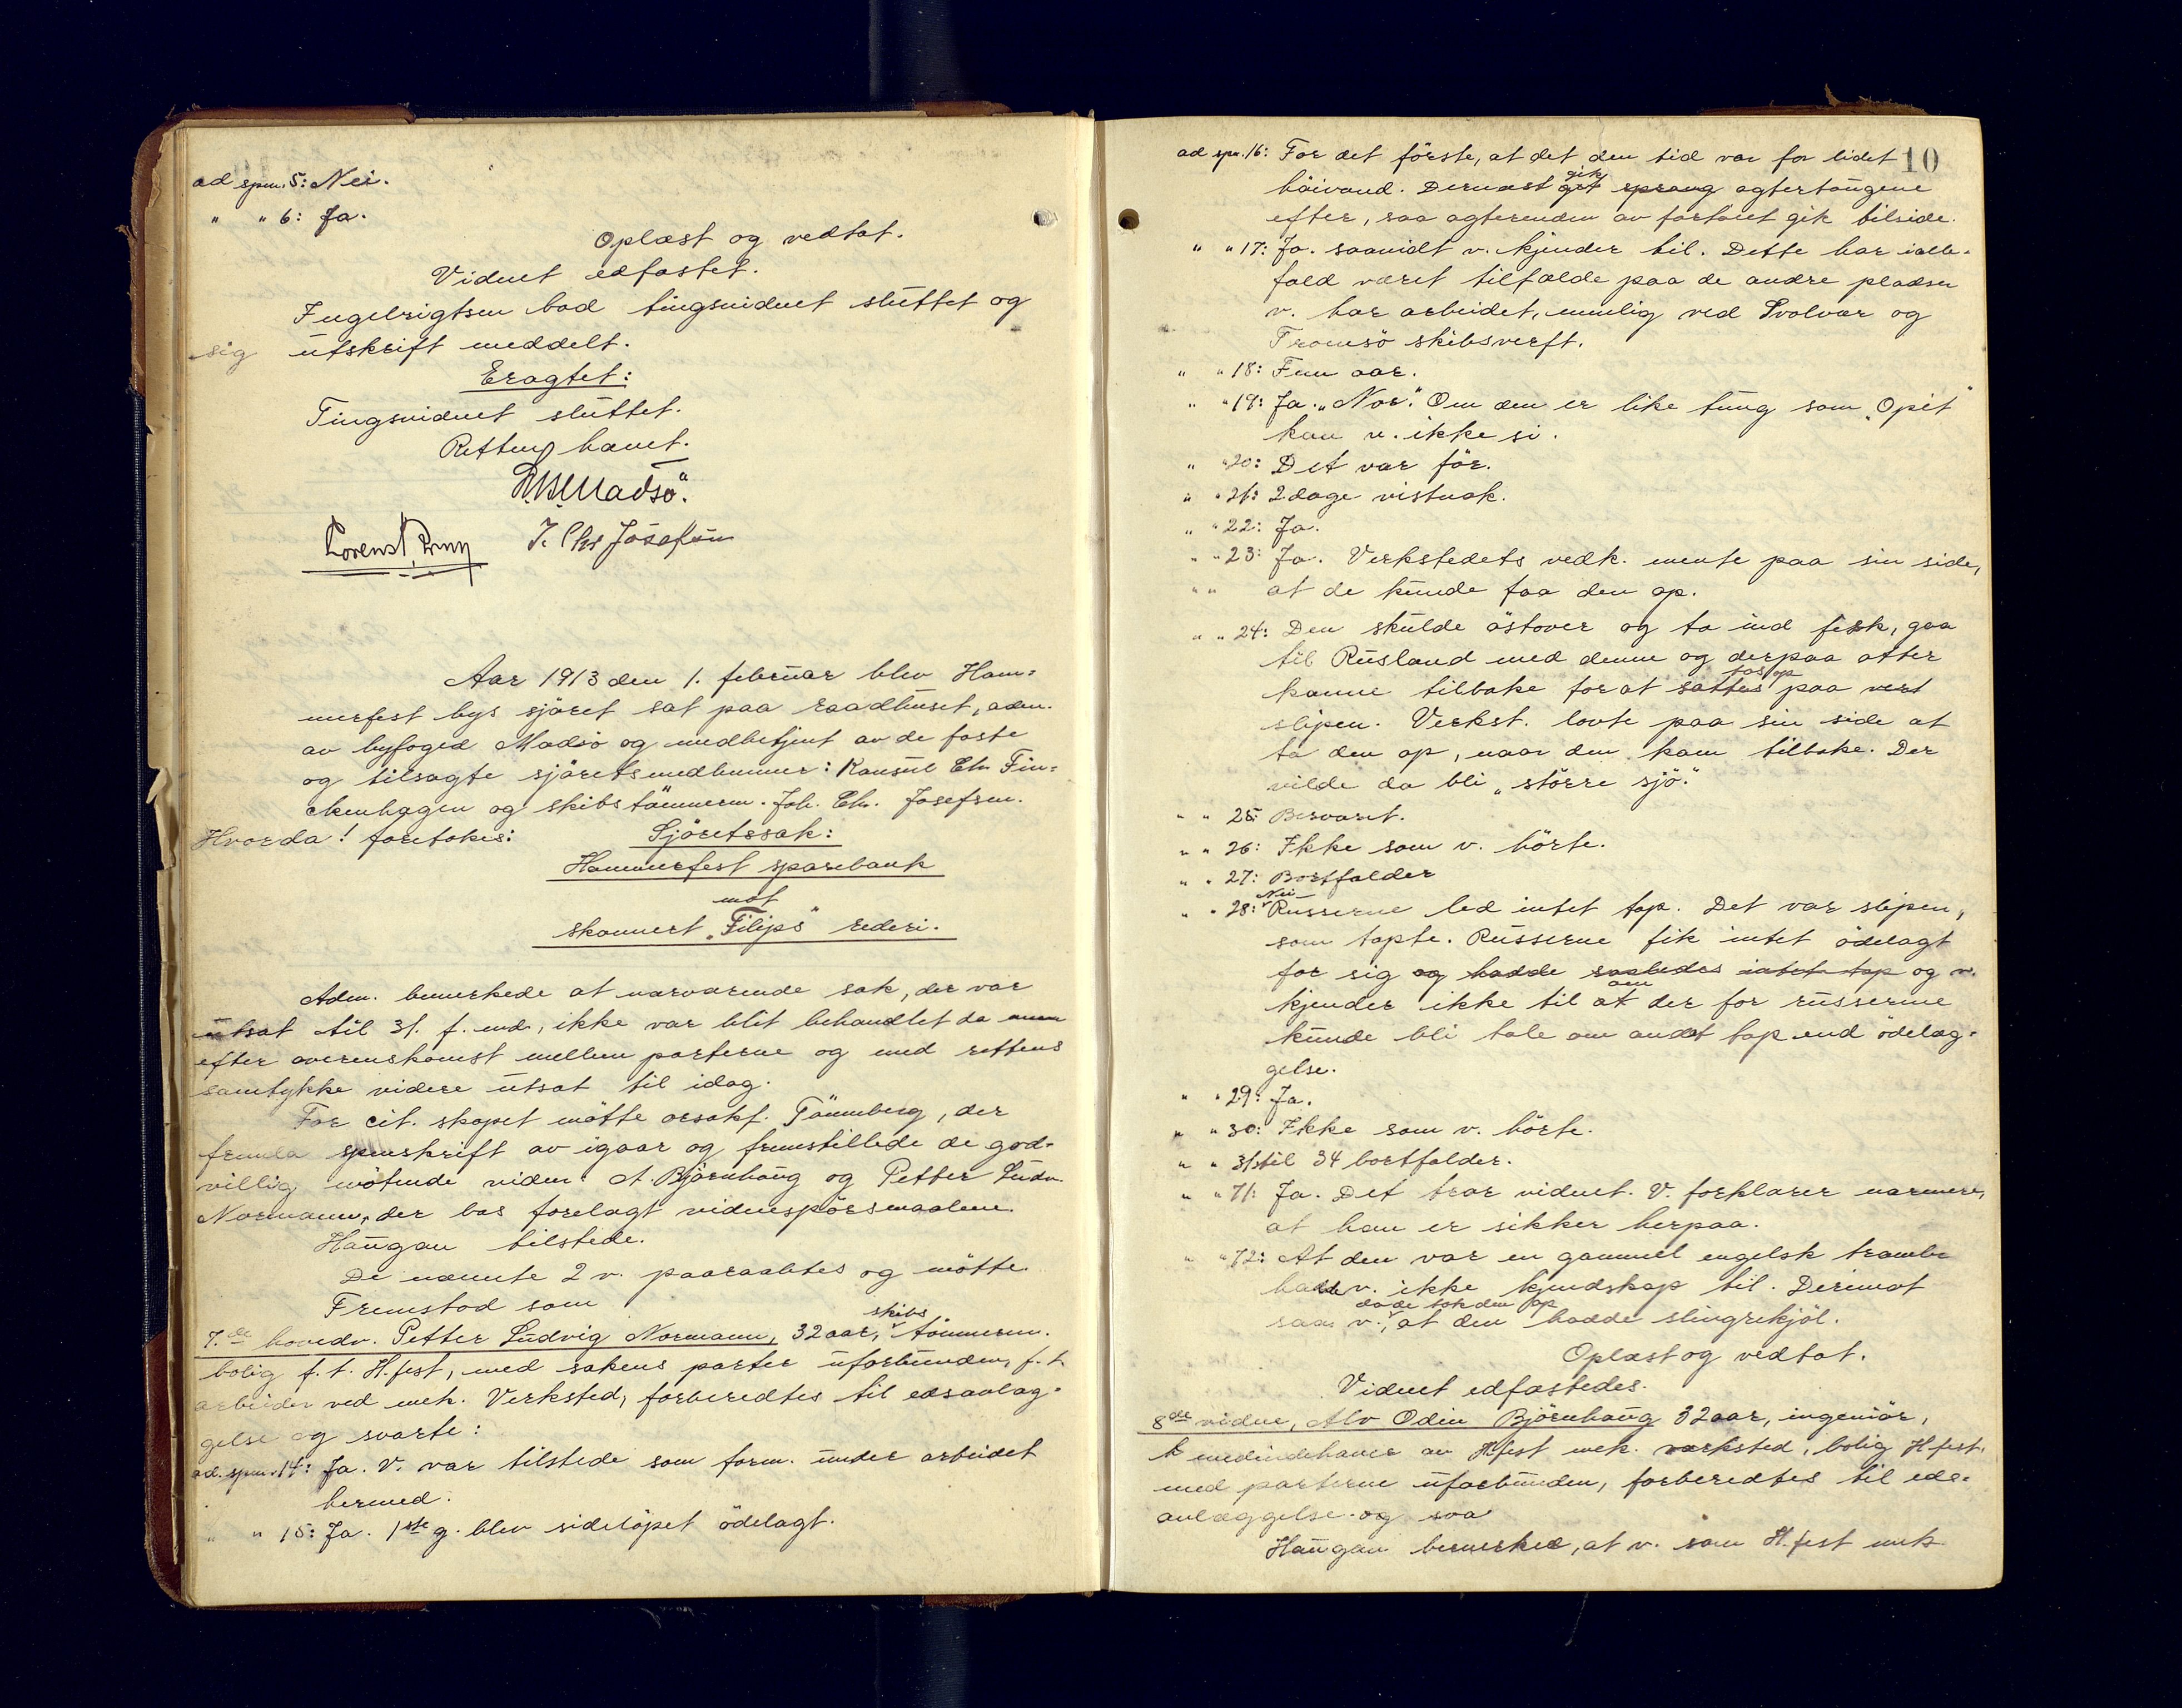 ad spm. 5: Nei.
" " 6: Ja.
Oplæst og vedtat.
Vidnet edfæstet.
Ingebrigtsen bad tingsvidnet sluttet og
sig utskrift meddelt.
Eragtet:
Tingsvidnet sluttet.
Retten hævet.
Madsø.
J. Chr Josefsen
Aar 1913 den 1. februar blev Ham-
merfest bys sjøret sat paa raadhuset, adm.
av byfoged Madsø og medbetjent av de faste
og tilsagte sjøretsmedlemmer: Konsul Chr Fin-
ckenhagen og skibstømmerm. Joh. Chr. Josefsen.
Hvorda! foretokes: Sjøretssak:
Hammerfest sparebank
mot
skonnert "Filips" rederi.
Adm. bemerkede at nærværende sak, der var
utsat til 31. f. md., ikke var blit behandlet da men
efter overenskomst mellem parterne og med rettens
samtykke videre utsat til idag.
For cit. skapet møtte orsakf. Tønnberg, der
fremla spmskrift av igaar og fremstillede de god-
villig møtende vidner A. Bjørnhaug og Petter Ludv.
Normann, der bas forelagt vidnespørsmaalene.
Haugan tilstede.
De nævnte 2 v. paaraabtes og møtte.
Fremstod som
7.de hovedv. Petter Ludvig Normann, 32 aar, skibstømmerm.
bolig f. t. H.fest, med sakens parter uforbunden, f. t.
arbeider ved mek. Verksted, forberedtes til edsavlæg-
gelse og svarte:
ad. spm. 14: Ja. V. var tilstede som form. under arbeidet
hermed.
" " 15: Ja. 1ste g. blev sideløpet ødelagt.
10
ad spm. 16: For det første, at det den tid var for lidet
høivand. Dernæst gik get sprang agtertaugene
efter, saa agterenden av fartøiet gik tilside.
" " 17: Ja. saavidt v. kjender til. Dette har ialle-
fald været tilfælde paa de andre pladser
v. har arbeidet, nemlig ved Svolvær og
Tromsø skibsverft.
" " 18: Fem aar.
" " 19: Ja. "Nor". Om den er like tung som "Opit"
kan v. ikke si.
" " 20: Det var før.
" " 21: 2 dage vistnok.
" " 22: Ja.
" " 23: Ja. Verkstedets vedk. mente paa sin side,
" " at de kunde faa den op.
" " 24: Den skulde østover og ta ind fisk, gaa
til Rusland med denne og derpaa atter
komme tilbake for at sættes tas op paa vert
slipen. Verkst. lovte paa sin side at
ta den op, naar den kom tilbake. Der
vilde da bli "større sjø".
" " 25: Besvaret.
" " 26: Ikke som v. hørte.
" " 27: Bortfalder
" " 28: Nei Russerne led intet tap. Det var slipen,
som tapte. Russerne fik intet ødelagt
for sig og hadde saaledes intet tap og v.
kjender ikke til at om der for russerne
kunde bli tale om andet tap end ødelæg-
gelse.
" " 29: Ja.
" " 30: Ikke som v. hørte.
" " 31 til 34 bortfalder.
" " 71: Ja. Det tror vidnet. V. forklarer nærmere,
at han er sikker herpaa.
" " 72: At den var en gammel engelsk
hadde v. ikke kjendskap til. Derimot
saa v., da de tok den op at den hadde slingrekjøl.
Oplæst og vedtat.
Vidnet edfæstedes.
8de vidne, Alv Odin Bjørnhaug 32 aar, ingeniør,
k medindehaver av H.fest mek. værksted, bolig H.fest.
med parterne uforbunden, forberedtes til eds-
avlæggelse og sva
Haugan bemerket, at v. som H.fest mek